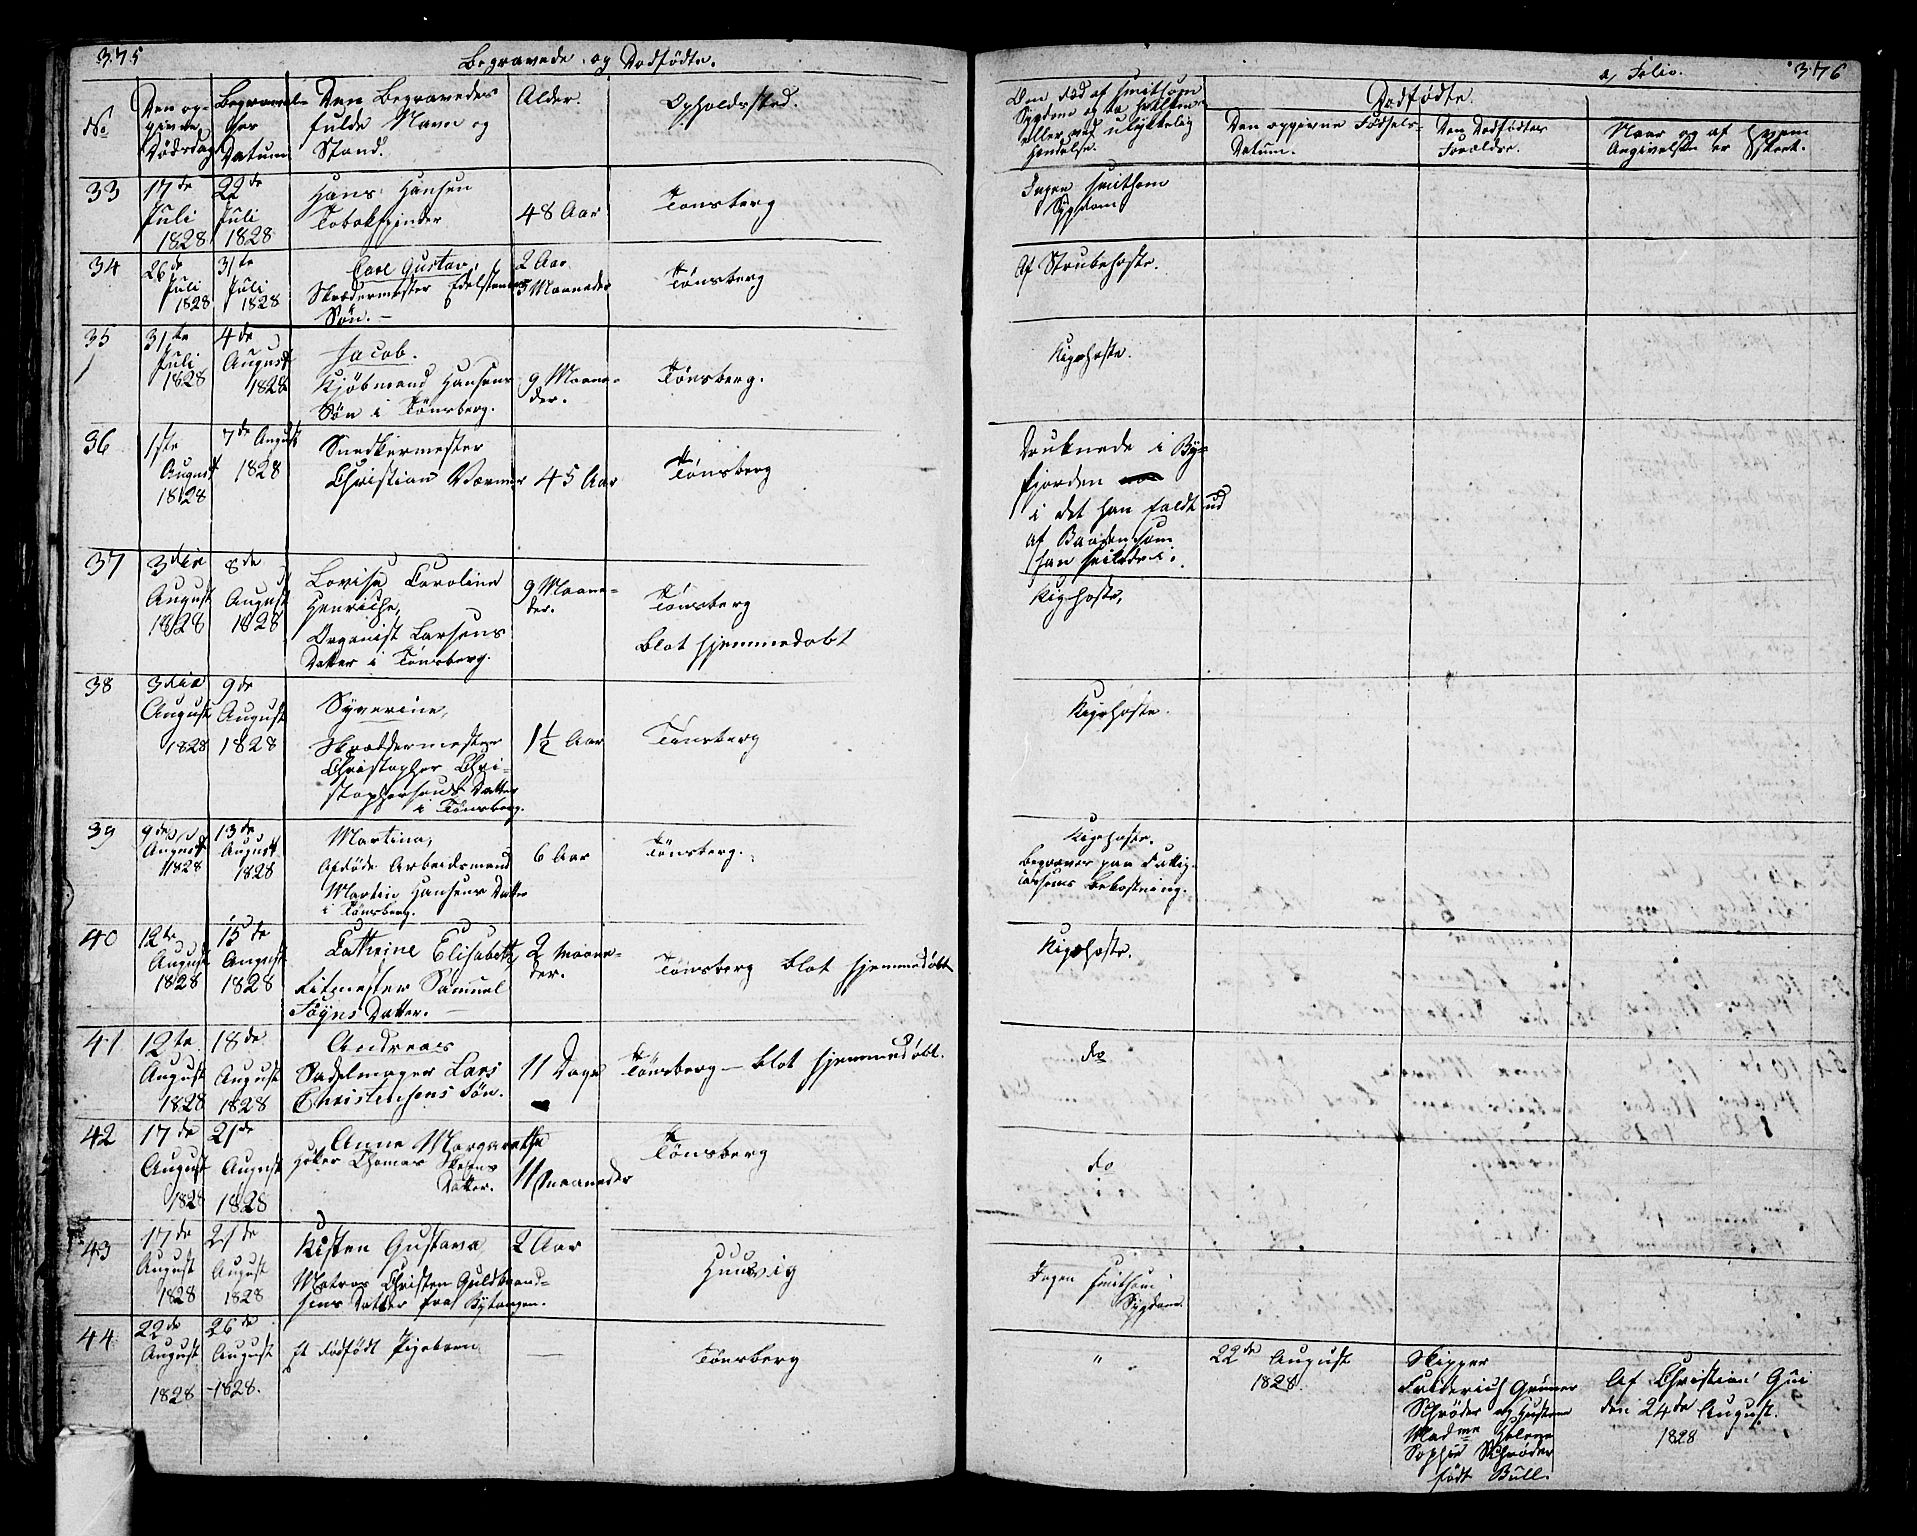 375
Begravede og Dødfødte.
No
Den opgivne Dødsdag
Begravelses Datum
Den Begravedes fulde Navn og Stand.
Alder.
Opholdssted.
33
17de Juli 1828
22de Juli 1828
Hans Hansen
Tobakspinder
48 Aar
Tønsberg
34
26de Juli 1828
31te Juli 1828
Carl Gustav,
Skrædermester Edelsteens
Søn.
2 Aar
3 Maaneder
Tønsberg
35
31te Juli 1828
4de August 1828
Jacob.
Kjöbmand Hansens
Søn i Tønsberg.
9 Maaneder.
Tønsberg.
36
1ste August 1828
7de August 1828
Snedkermester
Christian Wermer
45 Aar
Tønsberg
37
3die August 1828
8de August 1828
Lovise Caroline
Henriche,
Organist Larsens
Datter i Tønsberg.
9 Maaneder.
Tønsberg
blot hjemmedøbt
38
3die August 1828
9de August 1828
Syverine,
Skræddermester
Christopher Chri-
stophersens Datter
i Tønsberg.
1½ Aar
Tønsberg
39
9de August 1828
13de August 1828
Martina,
Afdøde Arbeidsmand
Martin Hansens Datter
i Tønsberg.
6 Aar
Tønsberg.
40
12te August 1828
15de August 1828
Cathrine Elisabeth,
Litmester Samuel
Föyns Datter.
2 Maane-
der.
Tønsberg blot hjemmedøbt
41
12te August 1828
18de August 1828
Andreas
Sadelmager Lars
Christensens Søn.
11 Dage
Tønsberg – blot hjemmedøbt.
42
17de August 1828
21de August 1828
Anne Margarethe
Höker Thomas
Datter.
11 Maaneder
Tønsberg
43
17de August 1828
21de August 1828
Kisten Gustava
Matros Christen Guldbrand-
sens Datter fra Bytangen.
2 Aar
Huusvig
44
22de August 1828
26de August 1828.
Et dødfödt Pigebarn
—
Tønsberg
a, Folio.
376
Om død af smitsom
Sygdom og da hvilken
eller ved ulykkelig
Hændelse.
Dødfødte.
Den opgivne Fødsels-
Datum.
Den Dødfødtes
Forældre.
Naar og af hvem
Angivelsen er skeet.
Ingen smitsom
Sygdom
Af Strubehoste.
Kigehoste.
Druknede i By-
fjorden
i det han faldt ud
af Baaden som
han seilede i.
Kigehoste,
Kigehoste.
Kigehoste.
Begraves paa Fattig-
Bekostning.
Kigehoste.
do
do
Ingen smitsom
Sygdom
"
22de August
1828.
Skipper
Friderich Grüner
Schrøder og Hustrue
Madme Helene
Sophie Schrøder
født Bull.
Af Christian Gui
den 24de August.
1828